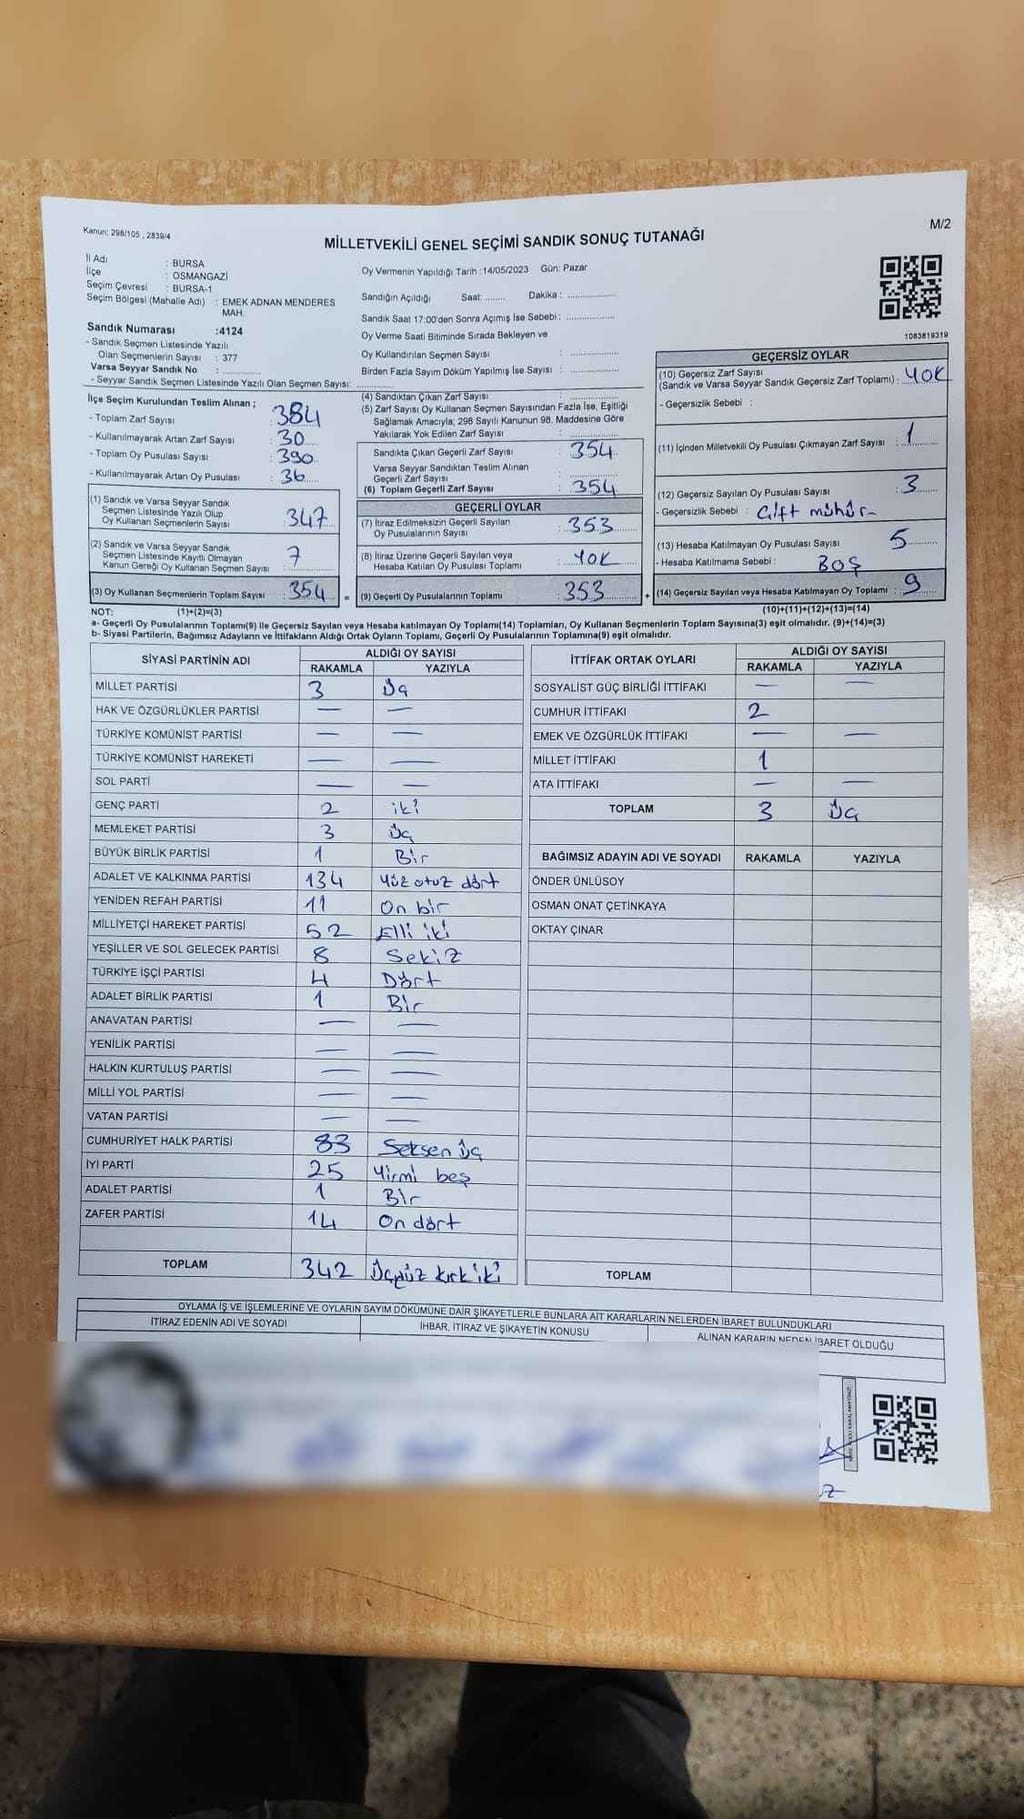 Kanun; 298/105 , 2839/4
M/2
MİLLETVEKİLİ GENEL SEÇİMİ SANDIK SONUÇ TUTANAĞI
İl Adı : BURSA
İlçe : OSMANGAZİ
Seçim Çevresi : BURSA-1
Seçim Bölgesi (Mahalle Adı) : EMEK ADNAN MENDERES MAH.
Sandık Numarası :4124
- Sandık Seçmen Listesinde Yazılı
Olan Seçmenlerin Sayısı : 377
Varsa Seyyar Sandık No :
- Seyyar Sandık Seçmen Listesinde Yazılı Olan Seçmen Sayısı:
Oy Vermenin Yapıldığı Tarih :14/05/2023 Gün: Pazar
Sandığın Açıldığı Saat: Dakika :
Sandık Saat 17:00'den Sonra Açımış İse Sebebi :
Oy Verme Saati Bitiminde Sırada Bekleyen ve
Oy Kullandırılan Seçmen Sayısı :
Birden Fazla Sayım Döküm Yapılmış İse Sayısı :
1083819319
İlçe Seçim Kurulundan Teslim Alınan ;
- Toplam Zarf Sayısı : 384
- Kullanılmayarak Artan Zarf Sayısı : 30
- Toplam Oy Pusulası Sayısı : 390
- Kullanılmayarak Artan Oy Pusulası : 36
(1) Sandık ve Varsa Seyyar Sandık
Seçmen Listesinde Yazılı Olup
Oy Kullanan Seçmenlerin Sayısı : 347
(2) Sandık ve Varsa Seyyar Sandık
Seçmen Listesinde Kayıtlı Olmayan
Kanun Gereği Oy Kullanan Seçmen Sayısı : 7
(3) Oy Kullanan Seçmenlerin Toplam Sayısı : 354 =
(4) Sandıktan Çıkan Zarf Sayısı :
(5) Zarf Sayısı Oy Kullanan Seçmen Sayısından Fazla İse, Eşitliği
Sağlamak Amacıyla; 298 Sayılı Kanunun 98. Maddesine Göre
Yakılarak Yok Edilen Zarf Sayısı :
Sandıkta Çıkan Geçerli Zarf Sayısı : 354
Varsa Seyyar Sandıktan Teslim Alınan
Geçerli Zarf Sayısı :
(6) Toplam Geçerli Zarf Sayısı : 354
GEÇERLİ OYLAR
(7) İtiraz Edilmeksizin Geçerli Sayılan
Oy Pusulalarının Sayısı : 353
(8) İtiraz Üzerine Geçerli Sayılan veya
Hesaba Katılan Oy Pusulası Toplamı : YOK
(9) Geçerli Oy Pusulalarının Toplamı : 353 +
GEÇERSİZ OYLAR
(10) Geçersiz Zarf Sayısı
(Sandık ve Varsa Seyyar Sandık Geçersiz Zarf Toplamı) : YOK
- Geçersizlik Sebebi :
(11) İçinden Milletvekili Oy Pusulası Çıkmayan Zarf Sayısı : 1
(12) Geçersiz Sayılan Oy Pusulası Sayısı : 3
- Geçersizlik Sebebi : Çift mühür
(13) Hesaba Katılmayan Oy Pusulası Sayısı : 5
- Hesaba Katılmama Sebebi : BOŞ
(14) Geçersiz Sayılan veya Hesaba Katılmayan Oy Toplamı : 9
NOT: (1)+(2)=(3) (10)+(11)+(12)+(13)=(14)
a- Geçerli Oy Pusulalarının Toplamı(9) ile Geçersiz Sayılan veya Hesaba katılmayan Oy Toplamı(14) Toplamları, Oy Kullanan Seçmenlerin Toplam Sayısına(3) eşit olmalıdır. (9)+(14)=(3)
b- Siyasi Partilerin, Bağımsız Adayların ve İttifakların Aldığı Ortak Oyların Toplamı, Geçerli Oy Pusulalarının Toplamına(9) eşit olmalıdır.
SİYASİ PARTİNİN ADI ALDIĞI OY SAYISI
RAKAMLA YAZIYLA
MİLLET PARTİSİ 3 Üç
HAK VE ÖZGÜRLÜKLER PARTİSİ — —
TÜRKİYE KOMÜNİST PARTİSİ — —
TÜRKİYE KOMÜNİST HAREKETİ — —
SOL PARTİ — —
GENÇ PARTİ 2 iki
MEMLEKET PARTİSİ 3 Üç
BÜYÜK BİRLİK PARTİSİ 1 Bir
ADALET VE KALKINMA PARTİSİ 134 Yüz otuz dört
YENİDEN REFAH PARTİSİ 11 On bir
MİLLİYETÇİ HAREKET PARTİSİ 52 Elli iki
YEŞİLLER VE SOL GELECEK PARTİSİ 8 Sekiz
TÜRKİYE İŞÇİ PARTİSİ 4 Dört
ADALET BİRLİK PARTİSİ 1 Bir
ANAVATAN PARTİSİ — —
YENİLİK PARTİSİ — —
HALKIN KURTULUŞ PARTİSİ — —
MİLLİ YOL PARTİSİ — —
VATAN PARTİSİ — —
CUMHURİYET HALK PARTİSİ 83 Seksen Üç
İYİ PARTİ 25 Yirmi beş
ADALET PARTİSİ 1 Bir
ZAFER PARTİSİ 14 On dört
TOPLAM 342 Üçyüz kırk iki
İTTİFAK ORTAK OYLARI ALDIĞI OY SAYISI
RAKAMLA YAZIYLA
SOSYALİST GÜÇ BİRLİĞİ İTTİFAKI — —
CUMHUR İTTİFAKI 2
EMEK VE ÖZGÜRLÜK İTTİFAKI — —
MİLLET İTTİFAKI 1
ATA İTTİFAKI — —
TOPLAM 3 Üç
BAĞIMSIZ ADAYIN ADI VE SOYADI RAKAMLA YAZIYLA
ÖNDER ÜNLÜSOY
OSMAN ONAT ÇETİNKAYA
OKTAY ÇINAR
TOPLAM
OYLAMA İŞ VE İŞLEMLERİNE VE OYLARIN SAYIM DÖKÜMÜNE DAİR ŞİKAYETLERLE BUNLARA AİT KARARLARIN NELERDEN İBARET BULUNDUKLARI
İTİRAZ EDENİN ADI VE SOYADI İHBAR, İTİRAZ VE ŞİKAYETİN KONUSU ALINAN KARARIN NEDEN İBARET OLDUĞU